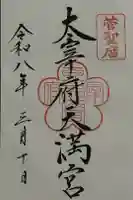 菅聖廟
太宰府天満宮
令和八年三月十日